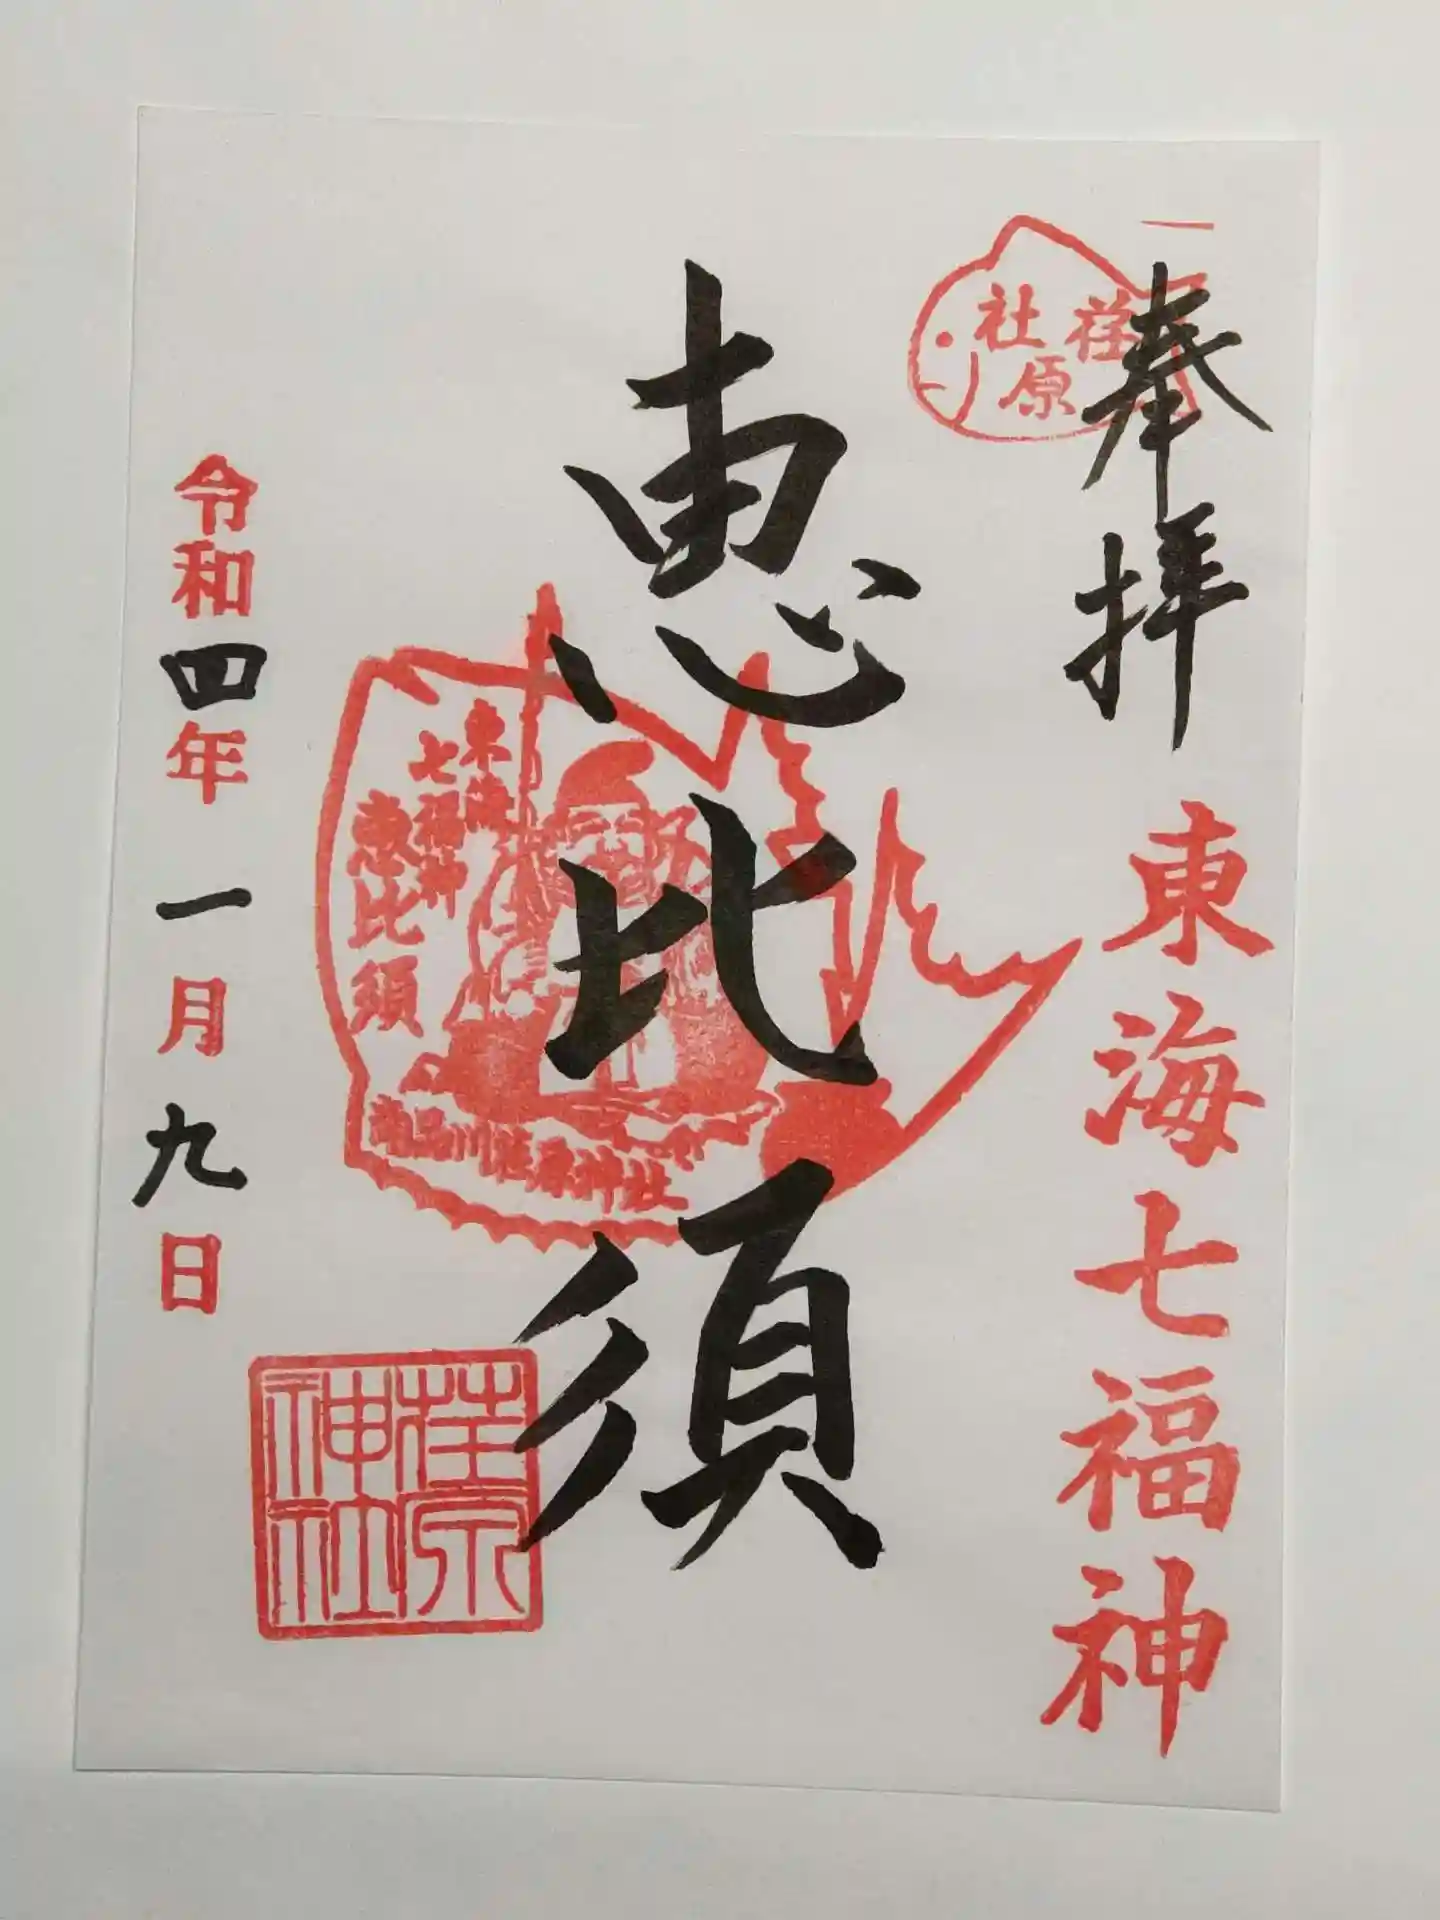 奉拝
東海七福神
社荏
原
恵比須
東海
七福神
恵比須
南品川荏原神社
令和四年一月九日
荏原
神社